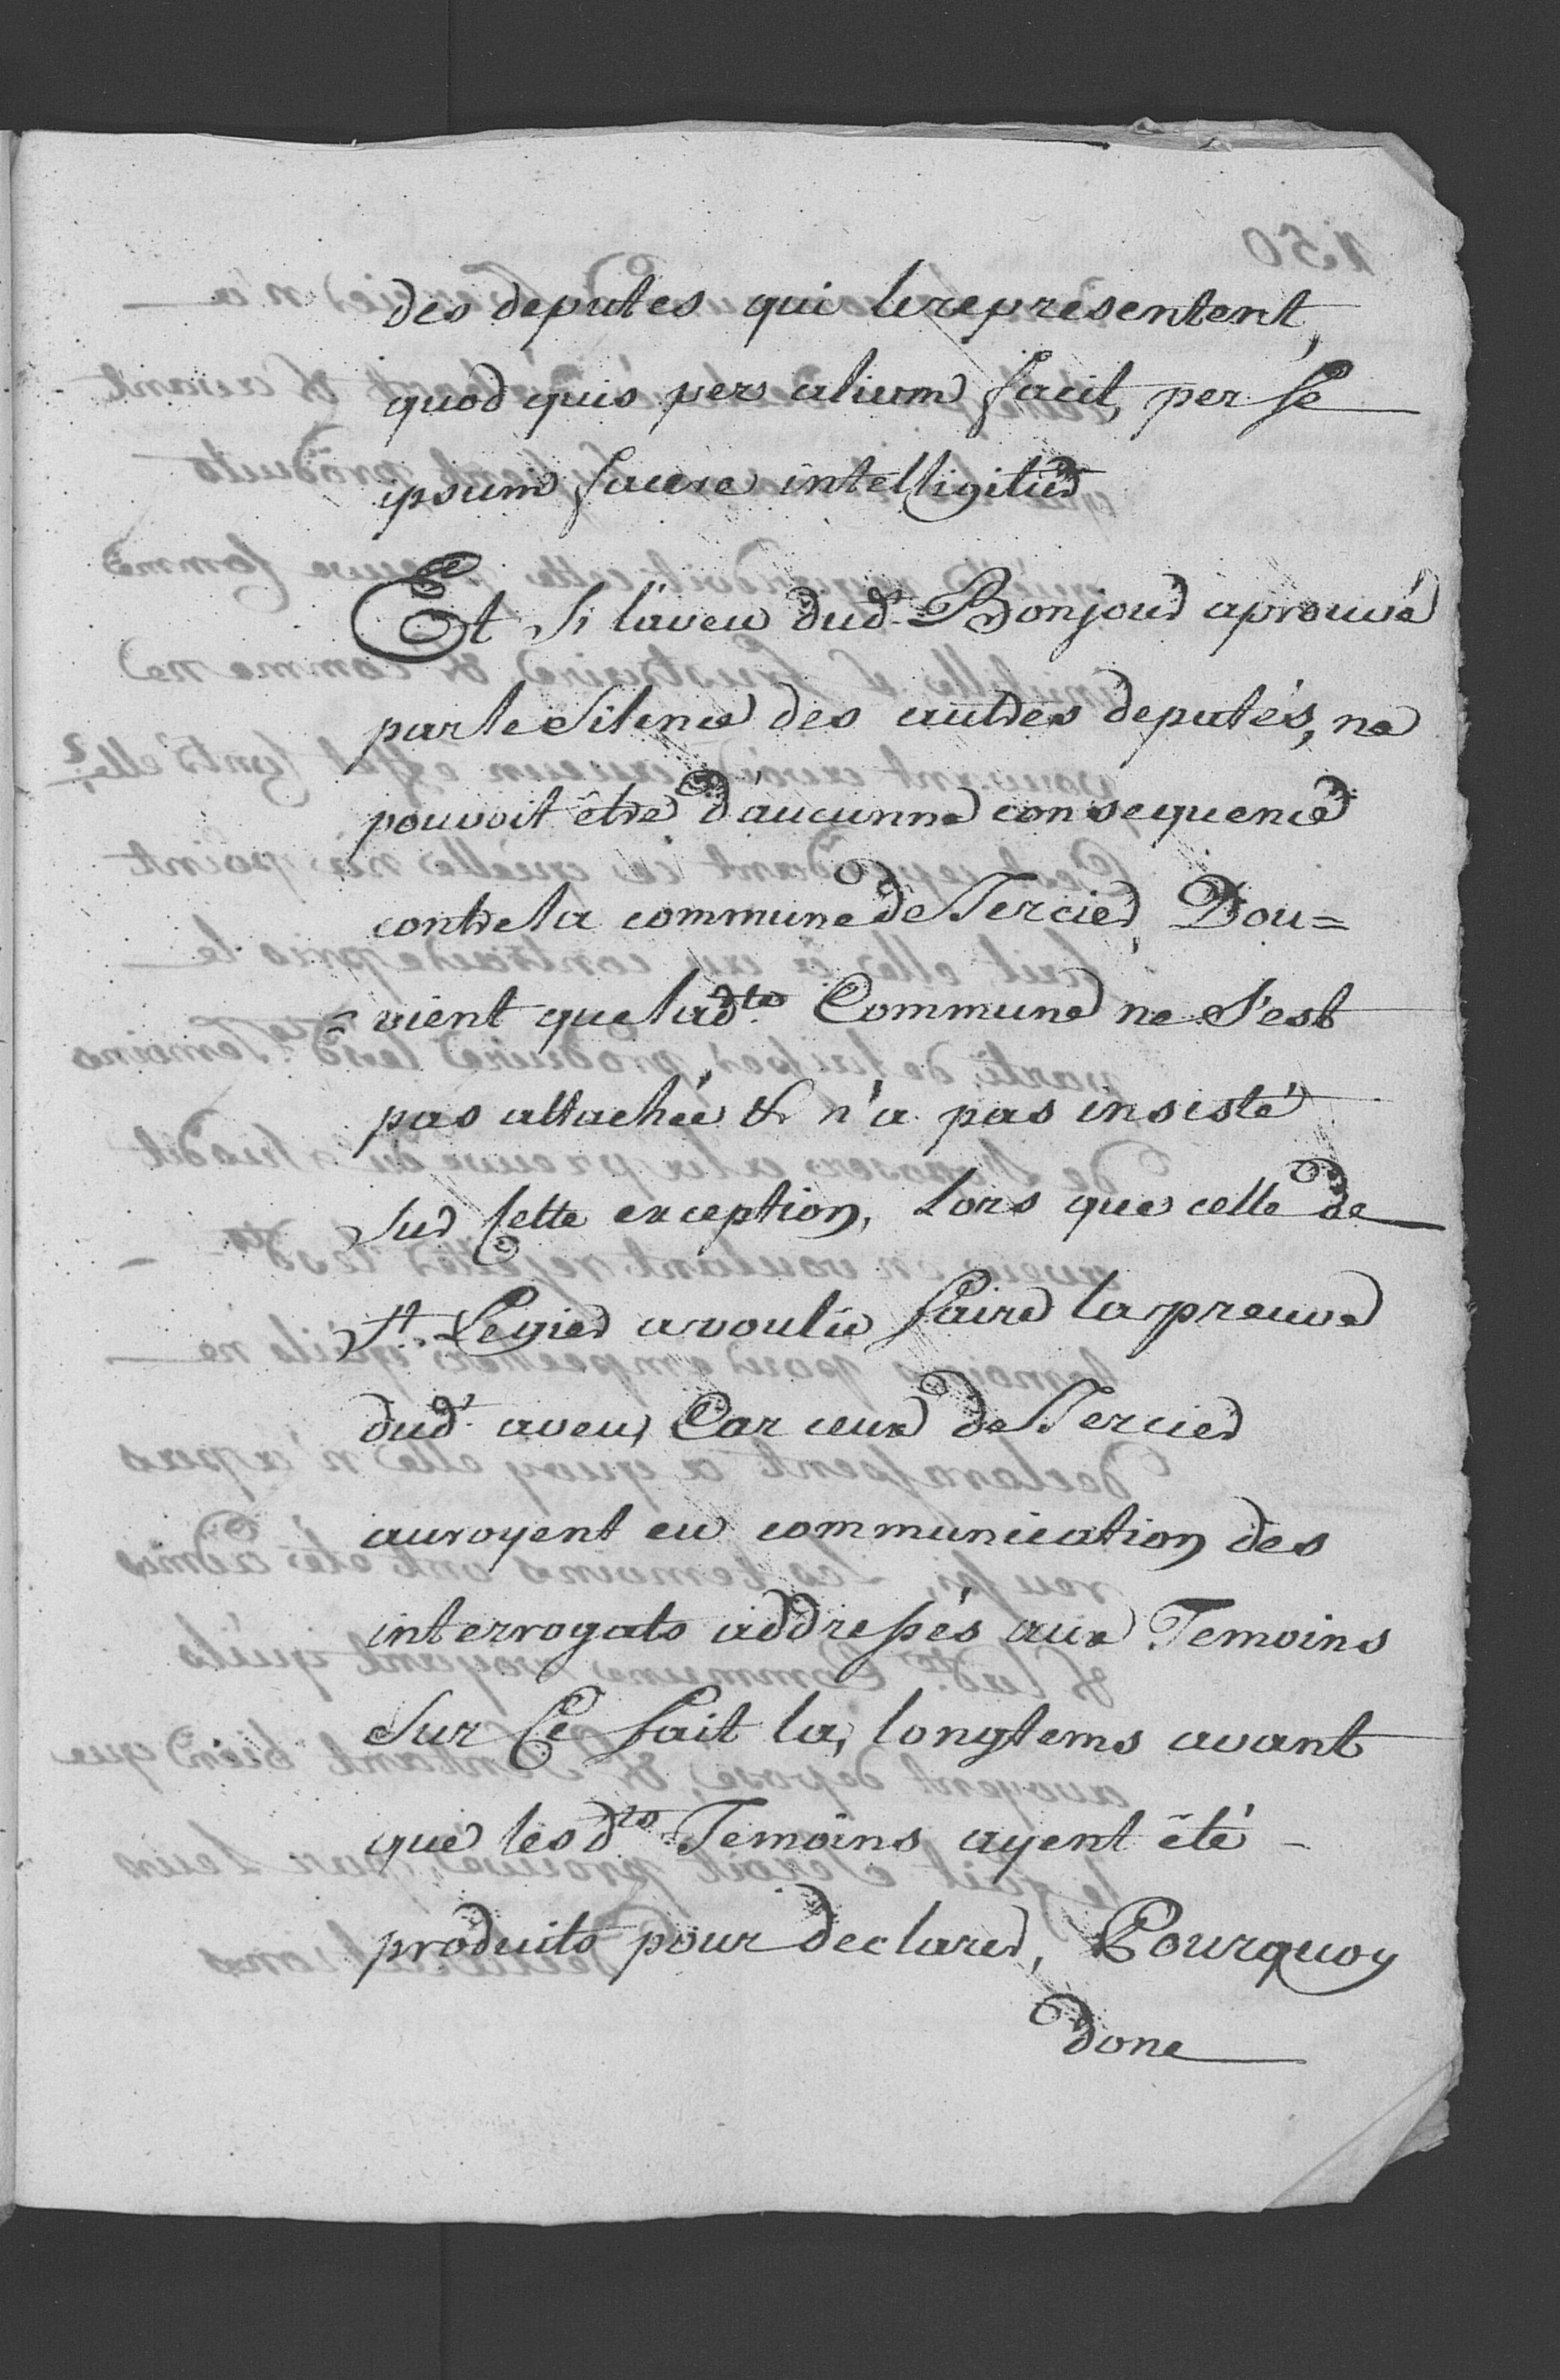 des deputes qui le representent,
quod quis per alium facit, per se
ipsum facere intelligitur
Et si l'aveu dud.t Bonjour aprouvé
par le silence des autres deputés, ne
pouvoit être d'aucunne consequence
contre la commune de Tercier, D'ou=
=vient que lad.te Commune ne s'est
pas attachée & n'a pas insisté
sur cette exception, Lors que celle de
St Legier a voulu faire la preuve
dud.t aveu, Car ceux de Tercier
auroyent eu communication des
interrogats addressés aux Temoins
sur ce fait la, longtems avant
que lesd.ts Temoins ayent êté -
produits pour declarer, Pourquoy
donc